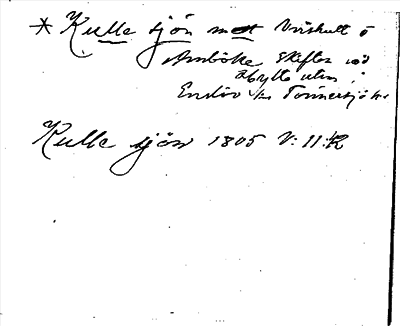 * Kulle sjön mot Vriskult ö
Amböke Skiften vid
Hylte utm i
Enslöv sn Tönnersjö hd
Kulle sjön 1805 V: 11: K